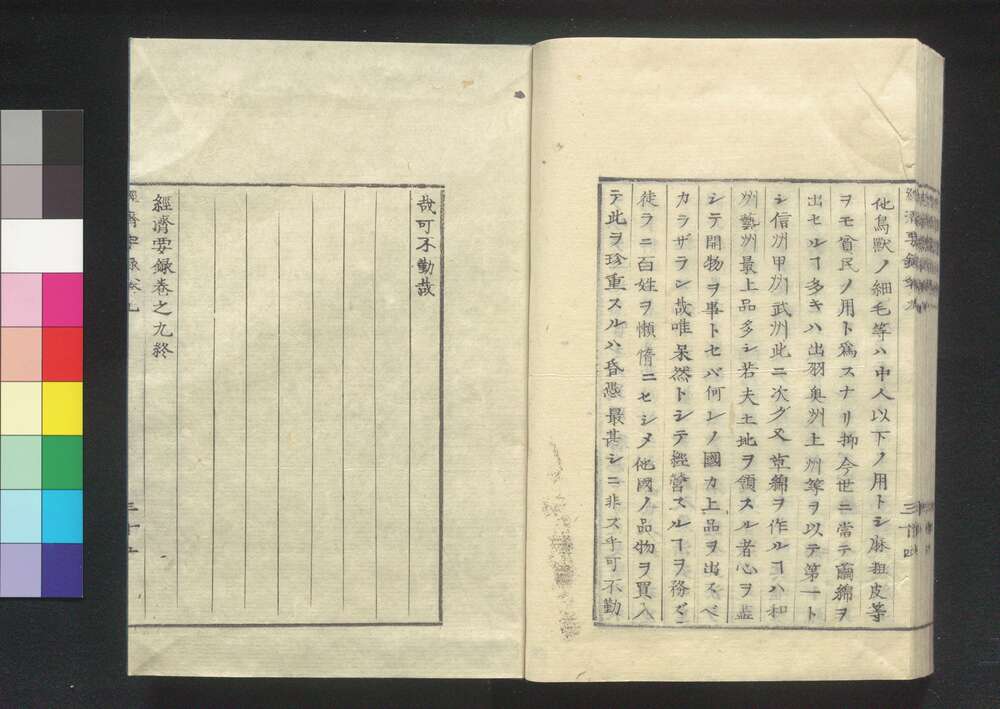 他鳥獸ノ細毛等ハ中人以下ノ用トシ麻粗皮等
ヲモ貧民ノ用ト爲スナリ抑今世ニ當テ繭綿ヲ
出セルヿ多キハ出羽奥州上州等ヲ以テ第一ト
シ信州甲州武州此ニ次グ又草綿ヲ作ルヿハ和
州藝州最上品多シ若夫土地ヲ領スル者心ヲ盡
シテ開物ヲ事トセバ何レノ國カ上品ヲ出スベ
カラザラン哉唯呆然トシテ經營スルヿヲ務ズ
徒ラニ百姓ヲ懶惰ニセシメ他國ノ品物ヲ買入
テ此ヲ珍重スルハ昏愚最甚シニ非ズ乎可不勤
哉可不勤哉
經濟要録卷之九終